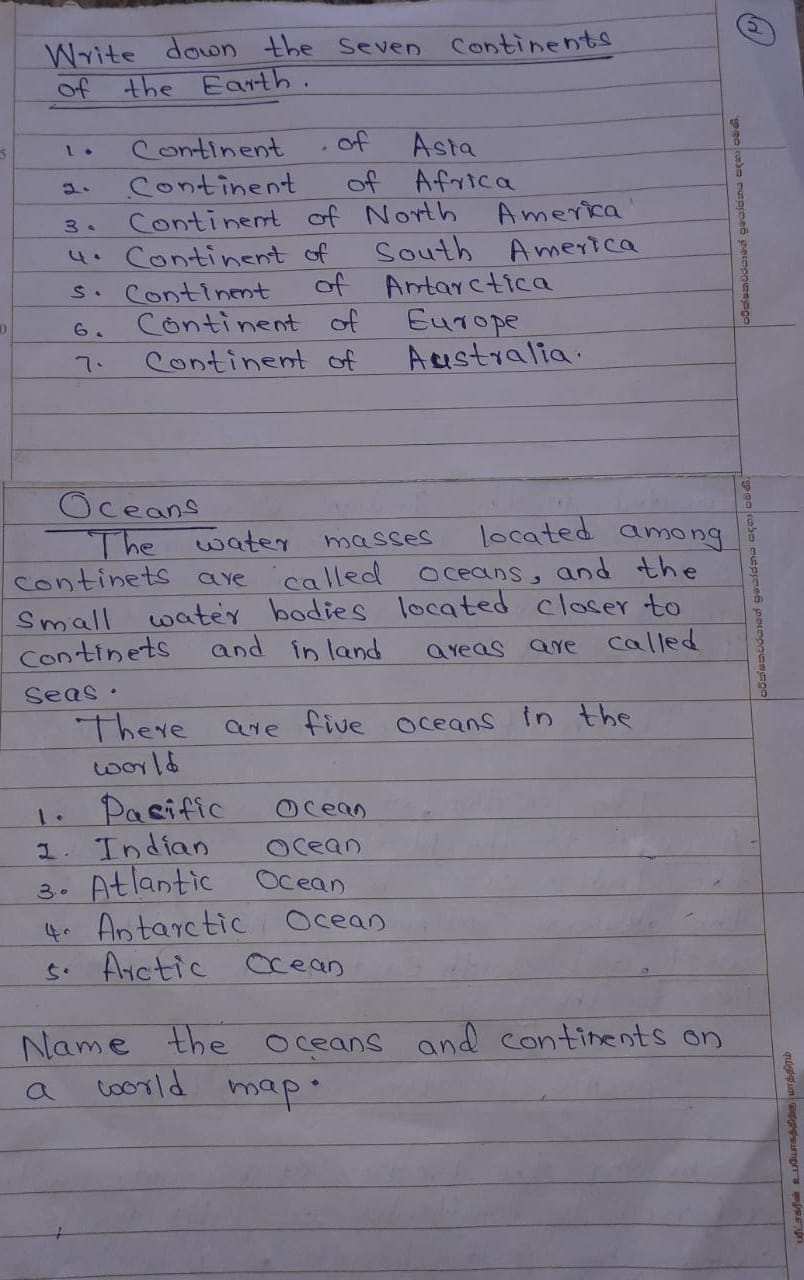 2
Write down the seven continents
of the Earth.
1. Continent of Asia
2. Continent of Africa
3. Continent of North America
4. Continent of South America
5. Continent of Antarctica
6. Continent of Europe
7. Continent of Australia.
Oceans
The water masses located among
continets are called oceans, and the
small water bodies located closer to
continets and inland areas are called
seas.
There are five oceans in the
world
1. Pacific Ocean
2. Indian Ocean
3. Atlantic Ocean
4. Antarctic Ocean
5. Arctic Ocean
Name the oceans and continents on
a world map.